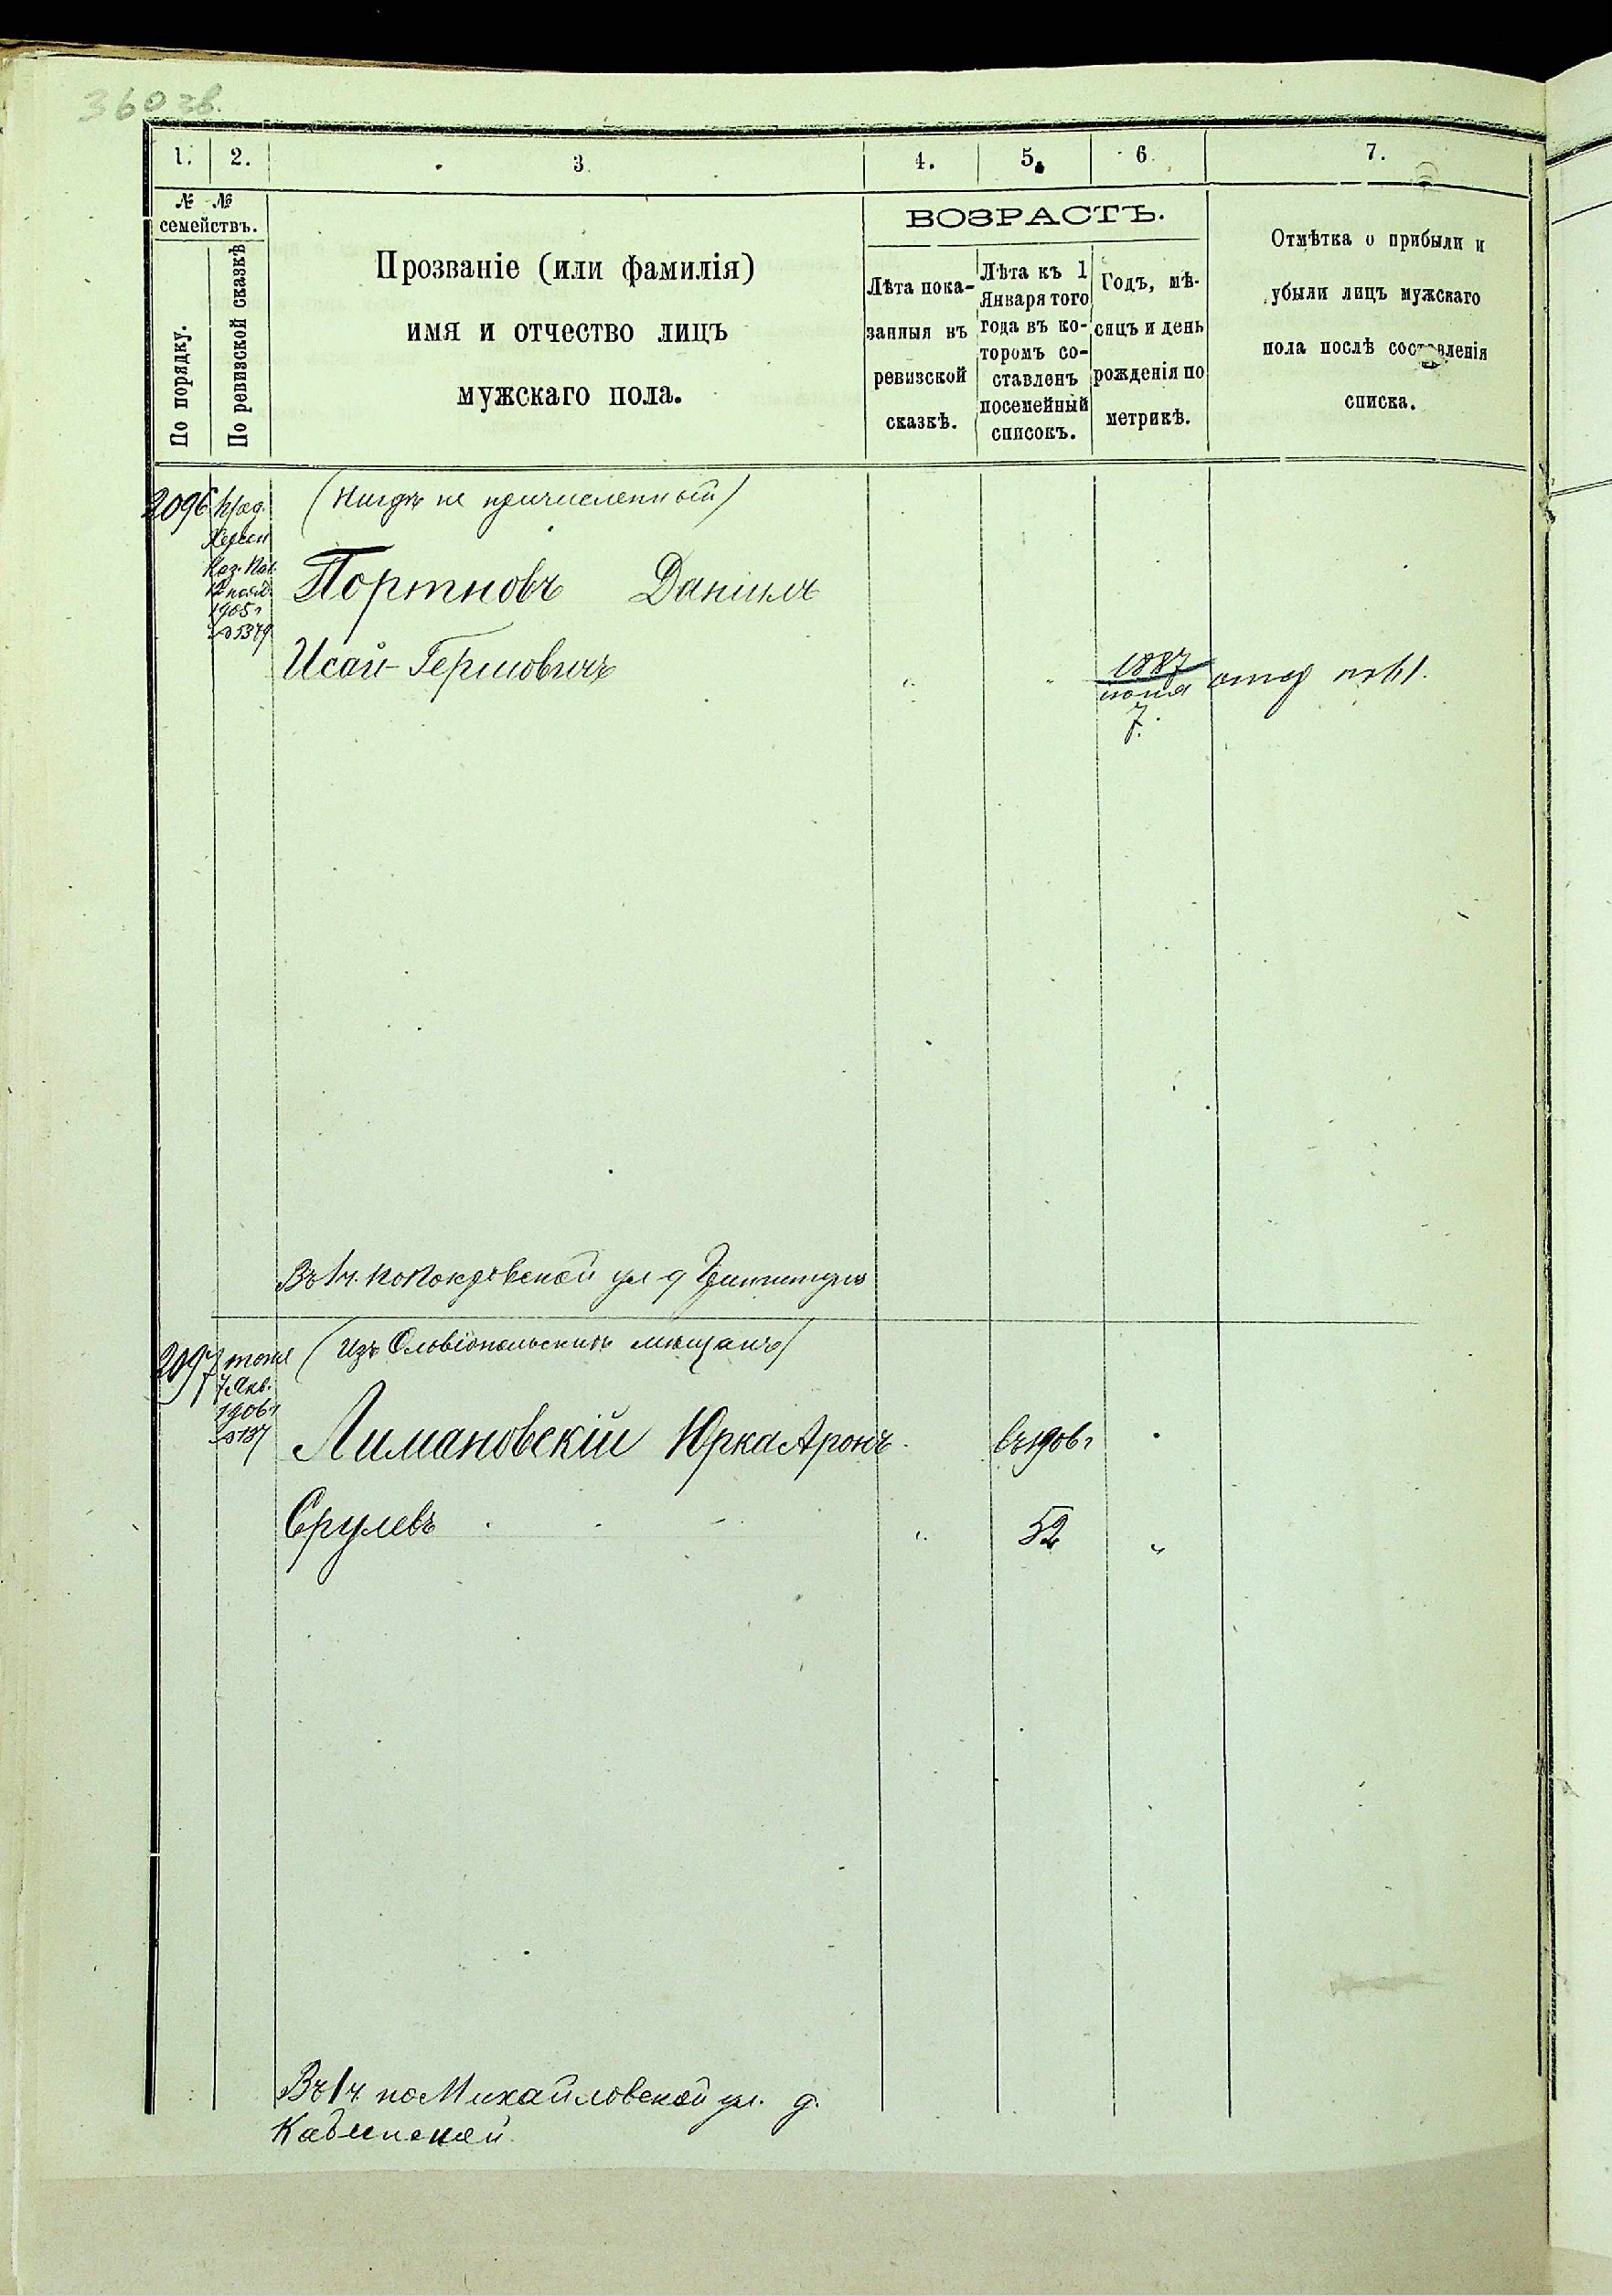 360 зв.
1. 2. 3. 4. 5. 6. 7.
№ №
семействъ.
По порядку.
По ревизской сказкѣ
Прозваніе (или фамилія)
имя и отчество лицъ
мужскаго пола.
ВОЗРАСТЪ.
Лѣта пока-
занныя въ
ревизской
сказкѣ.
Лѣта къ 1
Января того
года въ ко-
торомъ со-
ставленъ
посемейный
списокъ.
Годъ, мѣ-
сяцъ и день
рожденія по
метрикѣ.
Отмѣтка о прибыли и
убыли лицъ мужскаго
пола послѣ составленія
списка.
2096 (Нигдѣ не причисленный)
Херсон
Каз. Пал.
1905 г
№ 5379
Портновъ Даніилъ
Исай-Гершовичъ
1887
7.
Въ 1 ч. по Покровской ул д
2097 тоже (Изъ Ольвіопольскихъ мѣщанъ)
7 Янв.
1906 г
№ 137
Лимановскій Юрка Аронъ въ 1906 г
Срулевъ 52
Въ 1 ч по Михайловской ул. д.